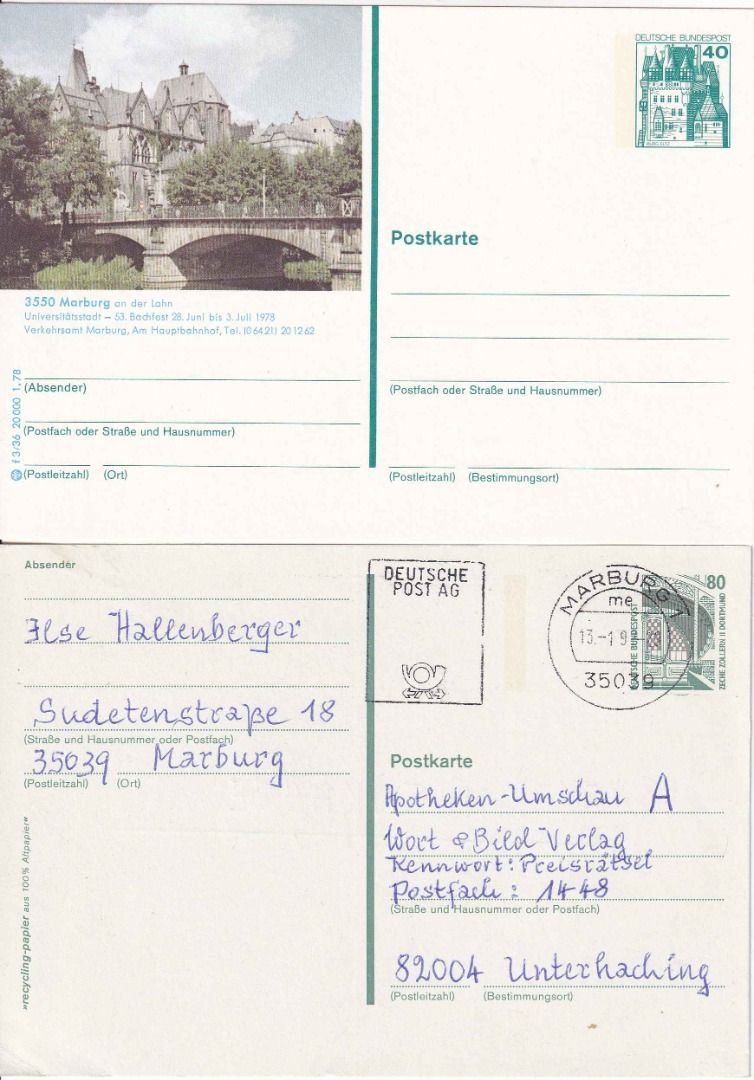 DEUTSCHE BUNDESPOST
40
BURG ELTZ
Postkarte
3550 Marburg an der Lahn
Universitätsstadt – 53. Bachfest 28. Juni bis 3. Juli 1978
Verkehrsamt Marburg, Am Hauptbahnhof, Tel. (06421) 201262
(Absender)
(Postfach oder Straße und Hausnummer)
(Postleitzahl) (Ort)
f 3/36 20000 1.78
(Postfach oder Straße und Hausnummer)
(Postleitzahl) (Bestimmungsort)
Absender
Ilse Hallenberger
Sudetenstraße 18
(Straße und Hausnummer oder Postfach)
35039 Marburg
(Postleitzahl) (Ort)
»recycling-papier aus 100% Altpapier«
DEUTSCHE
POST AG
MARBURG 1
me
13.-1.9
35039
80
DEUTSCHE BUNDESPOST
ZECHE ZOLLERN II DORTMUND
Postkarte
Apotheken-Umschau A
Wort & Bild Verlag
Kennwort: Preisrätsel
Postfach: 1448
(Straße und Hausnummer oder Postfach)
82004 Unterhaching
(Postleitzahl) (Bestimmungsort)